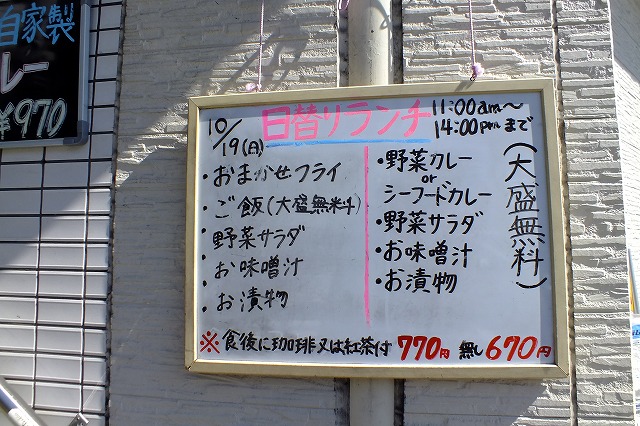 自家製
レー
¥970
10/19(月)
日替りランチ
11:00am〜
14:00pmまで
・おまかせフライ
・ご飯(大盛無料)
・野菜サラダ
・お味噌汁
・お漬物
・野菜カレー
or
シーフードカレー
・野菜サラダ
・お味噌汁
・お漬物
(大盛無料)
※食後に珈琲又は紅茶付 770円 無し670円